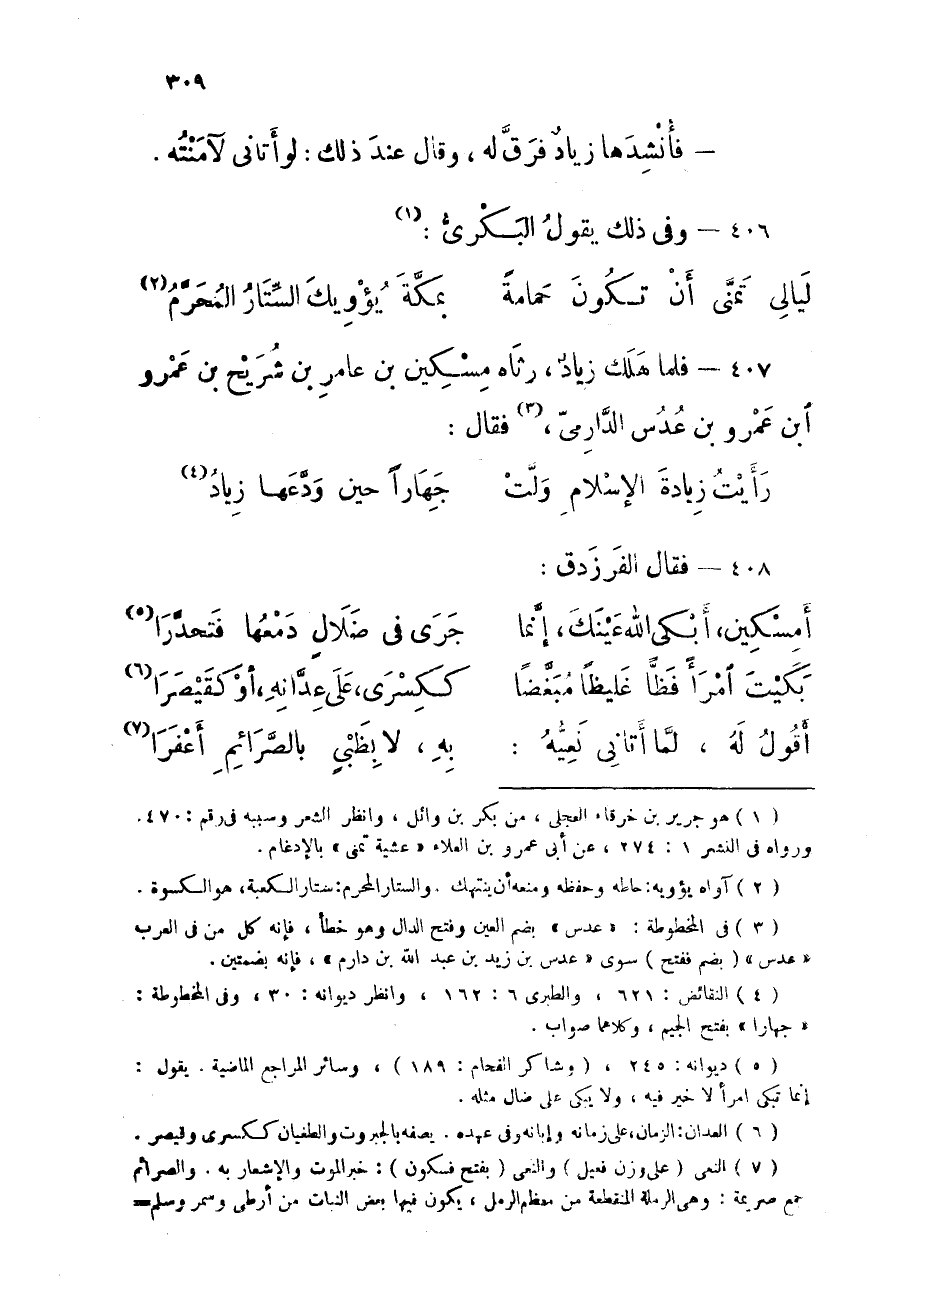 ٣٠٩
— فأُنْشِدَها زيادٌ فرَقَّ له ، وقال عندَ ذلك : لو أَتانى لآمَنْتُه .
٤٠٦ — وفى ذلك يقولُ البَكْرىُّ : (١)
لَيالِى تَمَنَّى أَنْ تكُونَ حَمامةً بمكَّةَ يُؤْوِيكَ السِّتَارُ المُحَرَّمُ (٢)
٤٠٧ — فلما هَلَك زيادٌ ، رثَاه مِسْكِين بن عامرِ بن شُرَيْح بن عَمْرو
ٱبن عَمْرو بن عُدُس الدَّارِمىّ ، (٣) فقال :
رَأَيْتُ زِيادةَ الإسْلامِ وَلَّتْ جَهَاراً حين وَدَّعَها زِيادُ (٤)
٤٠٨ — فقال الفَرزدَق :
أَمِسْكِين، أَبْكَى اللهُ عَيْنَكَ، إِنَّما جَرَى فى ضَلَالٍ دَمْعُها فَتَحدَّرَا (٥)
بَكَيْتَ ٱمْرَأً فَظًّا غَلِيظًا مُبَغَّضًا كَكِسْرَى، عَلَى عِدَّانِهِ، أَوْ كَقَيْصَرَا (٦)
أَقُولُ لَهُ ، لمَّا أَتانِى نَعِيُّهُ : بِهِ ، لا بِظَبْيٍ بالصَّرَائِمِ أَعْفَرَا (٧)
( ١ ) هو جرير بن خرقاء العجلى ، من بكر بن وائل ، وانظر الشعر وسببه فى رقم : ٤٧٠ .
ورواه فى النشر ١ : ٢٧٤ ، عن أبى عمرو بن العلاء « عشية تمنى » بالإدغام .
( ٢ ) آواه يؤويه : حاطه وحفظه ومنعه أن ينتهك . والستار المحرم : ستار الكعبة ، هو الكسوة .
( ٣ ) فى المخطوطة : « عدس » بضم العين وفتح الدال وهو خطأ ، فإنه كل من فى العرب
« عدس » ( بضم ففتح ) سوى « عدس بن زيد بن عبد الله بن دارم » ، فإنه بضمتين .
( ٤ ) النقائض : ٦٢١ ، والطبرى ٦ : ١٦٢ ، وانظر ديوانه : ٣٠ ، وفى المخطوطة :
« جهارا » بفتح الجيم ، وكلاهما صواب .
( ٥ ) ديوانه : ٢٤٥ ، ( وشاكر الفحام : ١٨٩ ) ، وسائر المراجع الماضية . يقول :
إنما تبكى امرأ لا خير فيه ، ولا يبكى على ضال مثله .
( ٦ ) العدان : الزمان ، على زمانه وإبانه وفى عهده . يصفه بالجبروت والطغيان ككسرى وقيصر .
( ٧ ) النعى ( على وزن فعيل ) والنعى ( بفتح فسكون ) : خبر الموت والإشعار به . والصرائم
جمع صريمة : وهى الرملة المنقطعة من معظم الرمل ، يكون فيها بعض النبات من أرطى وسمر وسلم =